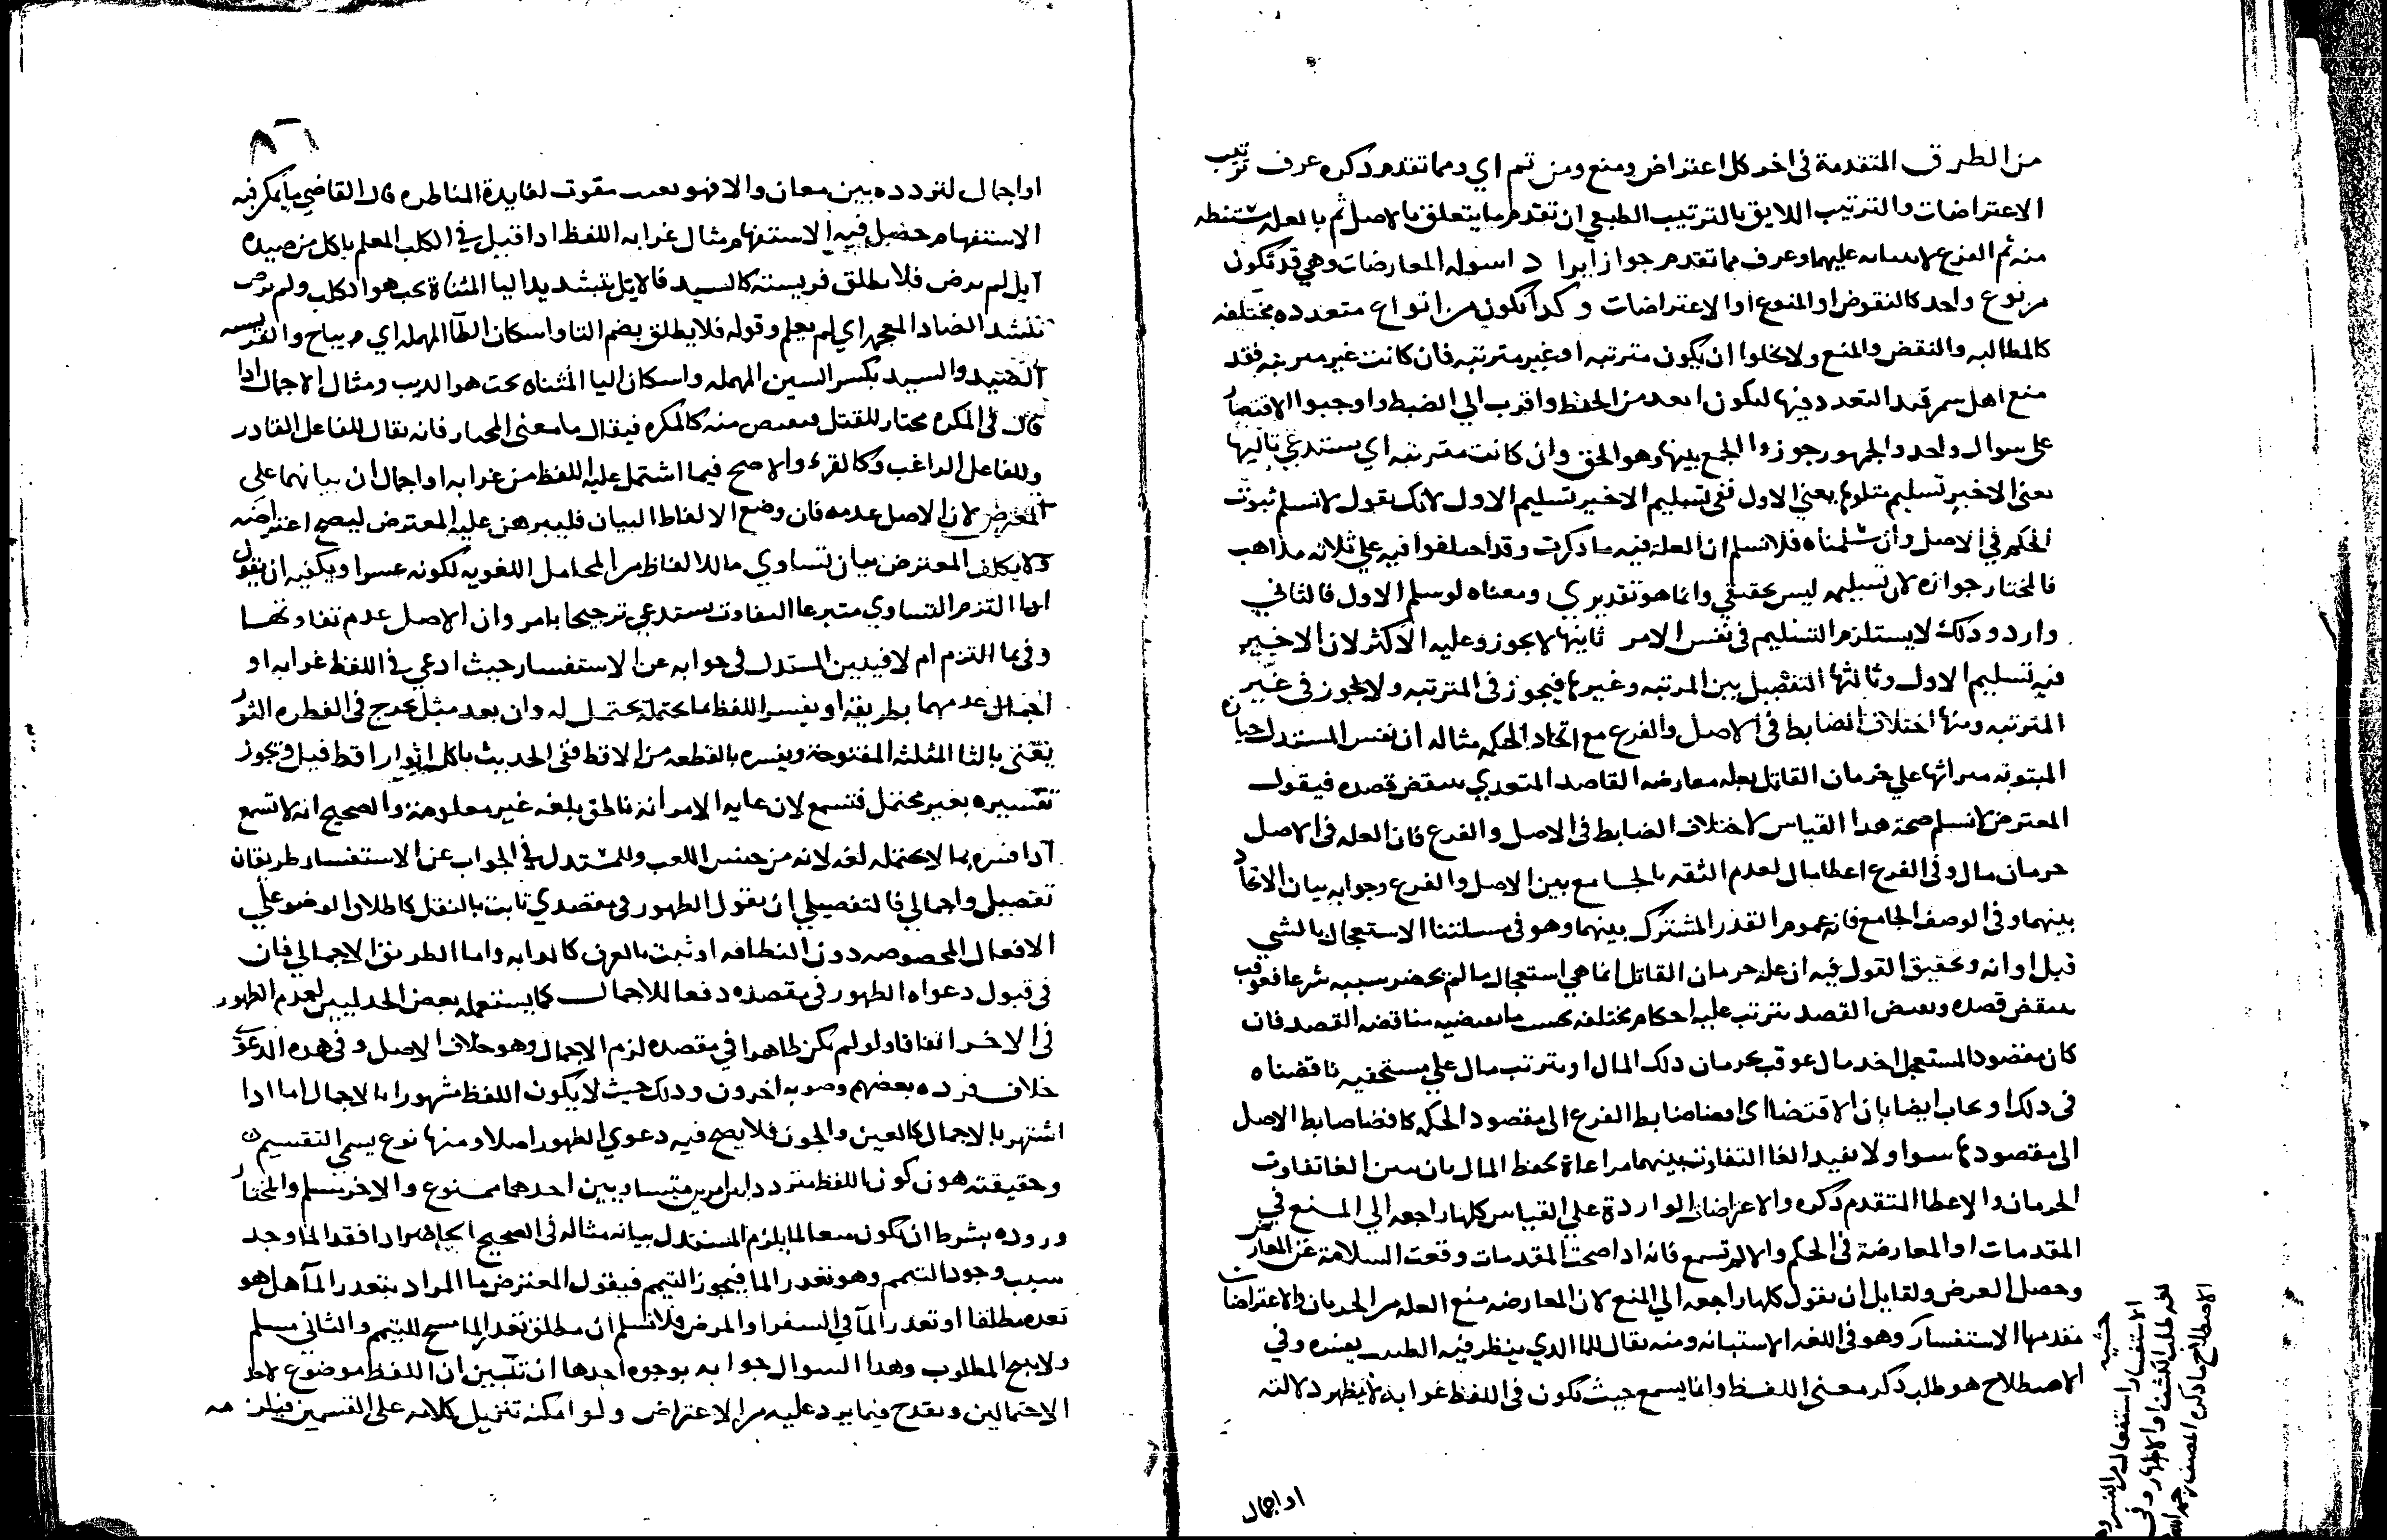 من الطرق المتقدمة في اخر كل اعتراض ومنع ومن ثم اي ومما تقدم ذكره عرف ترتيب
الاعتراضات والترتيب اللايق بالترتيب الطبعي ان تقدم ما يتعلق بالاصل ثم بالعله مستنبطه
منه ثم الفرع لابتنائه عليهما وعرف مما تقدم جواز ايراد اسوله المعارضات وهي قد تكون
من نوع واحد كالنقوض او المنوع او الاعتراضات وكذا تكون من انواع متعدده مختلفه
كالمطالبه والنقض والمنع ولا يخلوا ان يكون مترتبه او غير مترتبه فان كانت غير مترتبه فقد
منع اهل سمرقند التعدد فيها ليكون ابعد من الخبط واقرب الي الضبط واوجبوا الاقتصار
على سوال واحد والجمهور جوزوا الجمع بينها وهو الحق وان كانت مترتبه اي يستدعي تاليها
يعني الاخير تسليم متلوها يعني الاول ففي تسليم الاخير تسليم الاول لانك تقول لا نسلم ثبوت
الحكم في الاصل وان سلمناه فلا نسلم ان العلة فيه ما ذكرت وقد اختلفوا فيه علي ثلاثه مذاهب
فالمختار جوازه لان تسليمه ليس بحقيقي وانما هو تقديري ومعناه لو سلم الاول فالثاني
وارد وذلك لا يستلزم التسليم في نفس الامر ثانيها لا يجوز وعليه الاكثر لان الاخير
فيه تسليم الاول وثالثها التفصيل بين المرتبه وغيرها فيجوز في المترتبه ولا يجوز في غير
المترتبه ومنها اختلاف الضابط في الاصل والفرع مع اتحاد الحكمه مثاله ان نفس المستدل احيان
المبتوته ميراثها علي حرمان القاتل بعله معارضه القاصد المتعدي بنقض قصده فيقول
المعترض لا نسلم صحة هذا القياس لاختلاف الضابط في الاصل والفرع فان العله في الاصل
حرمان مال وفي الفرع اعطا مال لعدم الثقه بالجامع بين الاصل والفرع وجوابه بيان الاتحاد
بينهما وفي الوصف الجامع فانه عموم القدر المشترك بينهما وهو في مسلتنا الاستعجال بالشي
قبل اوانه وتحقيق القول فيه ان علة حرمان القاتل انما هي استعجال ما لم يحضر سببه شرعا فعوقب
بنقض قصده ونقض القصد يترتب عليه احكام مختلفه بحسب ما يقتضيه مناقضه القصد فان
كان مقصود المستعجل اخذ مال عوقب بحرمان ذلك المال او يترتب مال علي مستحقيه ناقضناه
في ذلك او يجاب ايضا بان الاقتضا اي افضا ضابط الفرع الى مقصود الحكم كافضا ضابط الاصل
الى مقصودها سوا ولا يفيد الغا التفاوت بينهما مراعاة لحفظ المال بان يبين الغا تفاوت
الحرمان والاعطا المتقدم ذكره والاعتراضات الواردة علي القياس كلها راجعه الي المنع في
المقدمات او المعارضة في الحكم والا لم تسمع فانه اذا صحت المقدمات وقعت السلامة عن المعارض
وحصل الغرض ولقايل ان يقول كلها راجعه الي المنع لان المعارضه منع العله من الجريان والاعتراضات
مقدمها الاستفسار وهو في اللغه الاستبانه ومنه يقال للما الذي ينظر فيه الطبيب تفسره وفي
الاصطلاح هو طلب ذكر معنى اللفظ وانما يسمع حيث تكون في اللفظ غرابه لا يظهر دلالته
او اجمال
حشيه
الاستفسار استفعال من الفسر وهو
لغه طلب الكشف والاظهار وفي
الاصطلاح ما ذكره المصنف رحمه الله
او اجمال لتردده بين معان والا فهو تعنت مفوت لفايدة المناظره قال القاضي ما يمكن فيه
الاستفهام حصل فيه الاستفهام مثال غرابه اللفظ اذا قيل في الكلب المعلم ياكل من صيده
ايل لم يرض فلا يطلق فريسته كالسيد فالايل بتشديد اليا المثناة تحت هو الكلب ولم يرض
بتشديد الضاد المعجمه اي لم يعلم وقوله فلا يطلق بضم التا واسكان الطا المهمله اي م يباح والفريسه
الصيد والسيد بكسر السين المهمله واسكان اليا المثناه تحت هو الذيب ومثال الاجمال اذا
قال في المكره مختار للقتل فيقتص منه كالمكره فيقال ما معنى المختار فانه يقال للفاعل القادر
وللفاعل الراغب وكالقرء والاصح فيما اشتمل عليه اللفظ من غرابه او اجمال ان بيانهما على
المعترض لان الاصل عدمه فان وضع الالفاظ البيان فليبرهن عليه المعترض ليصح اعتراضه
ولا يكلف المعترض بيان تساوي ما للالفاظ من المحامل اللغويه لكونه عسرا ويكفيه ان يقول
اذا التزم التساوي متبرعا التفاوت يستدعي ترجيحا بامر وان الاصل عدم تفاوتها
وفي ما التزم ام لا فيبين المستدل في جوابه عن الاستفسار حيث ادعي في اللفظ غرابه او
اجمال عدمهما بطريقه او يفسر اللفظ بما يحتمله يحتمل له وان بعد مثل يخرج في الفطره الثور
يعني بالثا المثلثه المفتوحة ويفسره بالقطعه من الاقط ففي الحديث ياكل اثوار اقط قيل ويجوز
تفسيره بغير محتمل فتسمع لان غايه الامر انه ناطق بلغه غير معلومة والصحيح انه لا تسمع
اذا فسره بما لا يحتمله لغه لانه من جنس اللعب وللمستدل في الجواب عن الاستفسار طريقان
تفصيلي واجمالي فالتفصيلي ان يقول الظهور في مقصدي ثابت بالنقل كاطلاق الوضو علي
الافعال المخصوصه دون النظافه او ثبت بالعرف كالدابه واما الطريق الاجمالي فان
في قبول دعواه الظهور في مقصده دفعا للاجمال كما يستعمله بعض الجدليين لعدم الظهور
في الاخر اتفاقا ولو لم يكن ظاهرا في مقصده لزم الاجمال وهو خلاف الاصل وفي هذه الدعوى
خلاف فرده بعضهم وصوبه اخرون وذلك حيث لا يكون اللفظ مشهورا بالاجمال اما اذا
اشتهر بالاجمال كالعين والجون فلا يصح فيه دعوي الظهور اصلا ومنها نوع يسمى التقسيم
وحقيقته هو كون اللفظ مترددا بين امرين متساويين احدهما ممنوع والاخر مسلم والمختار
وروده بشرط ان يكون منعا لما يلزم المستدل بيانه مثاله في الصحيح الحاضر اذا فقد الما وجد
سبب وجود التيمم وهو تعذر الما فيجوز التيمم فيقول المعترض ما المراد بتعذر الما هل هو
تعذره مطلقا او تعذر الما في السفر او المرض فلا نسلم ان مطلق تعذر الما مبيح للتيمم والثاني مسلم
ولا ينتج المطلوب وهذا السوال جوابه بوجوه احدها ان تبين ان اللفظ موضوع لاحد
الاحتمالين ويقدح فيما يرد عليه من الاعتراض ولو امكنه تنزيل كلامه على القسمين فيلزمه